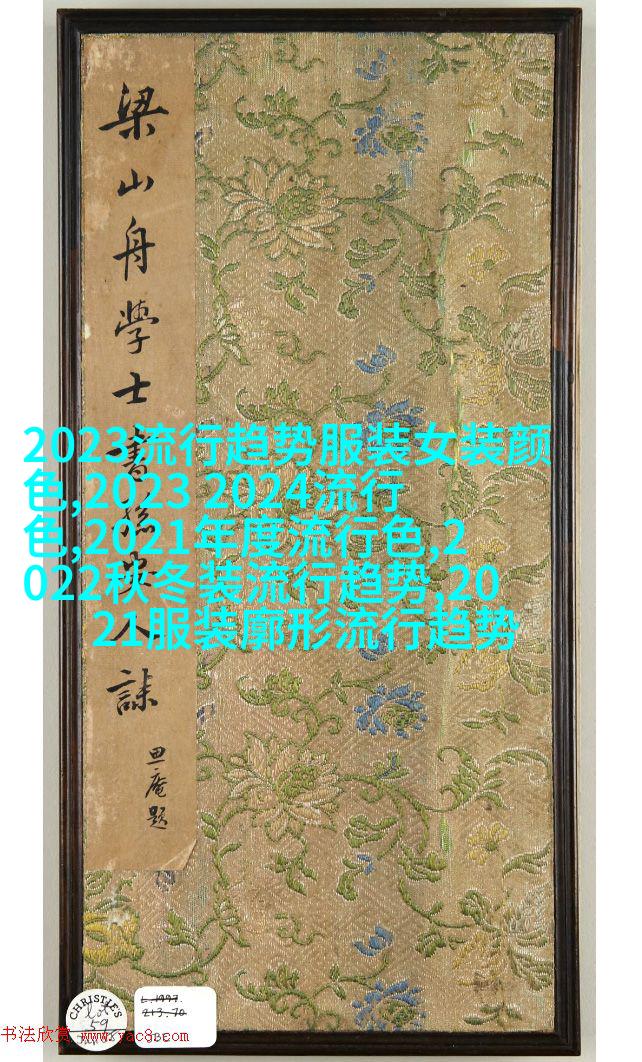 梁山舟學士書孫安人誄
庵題
2023流行趋势服装女装颜
色,2023 2024流行
色,2021年度流行色,2
022秋冬装流行趋势,20
21服装廓形流行趋势
CHRISTIE'S
Lot
59
L.1997.
213.70
书法欣赏 www.yac8.com